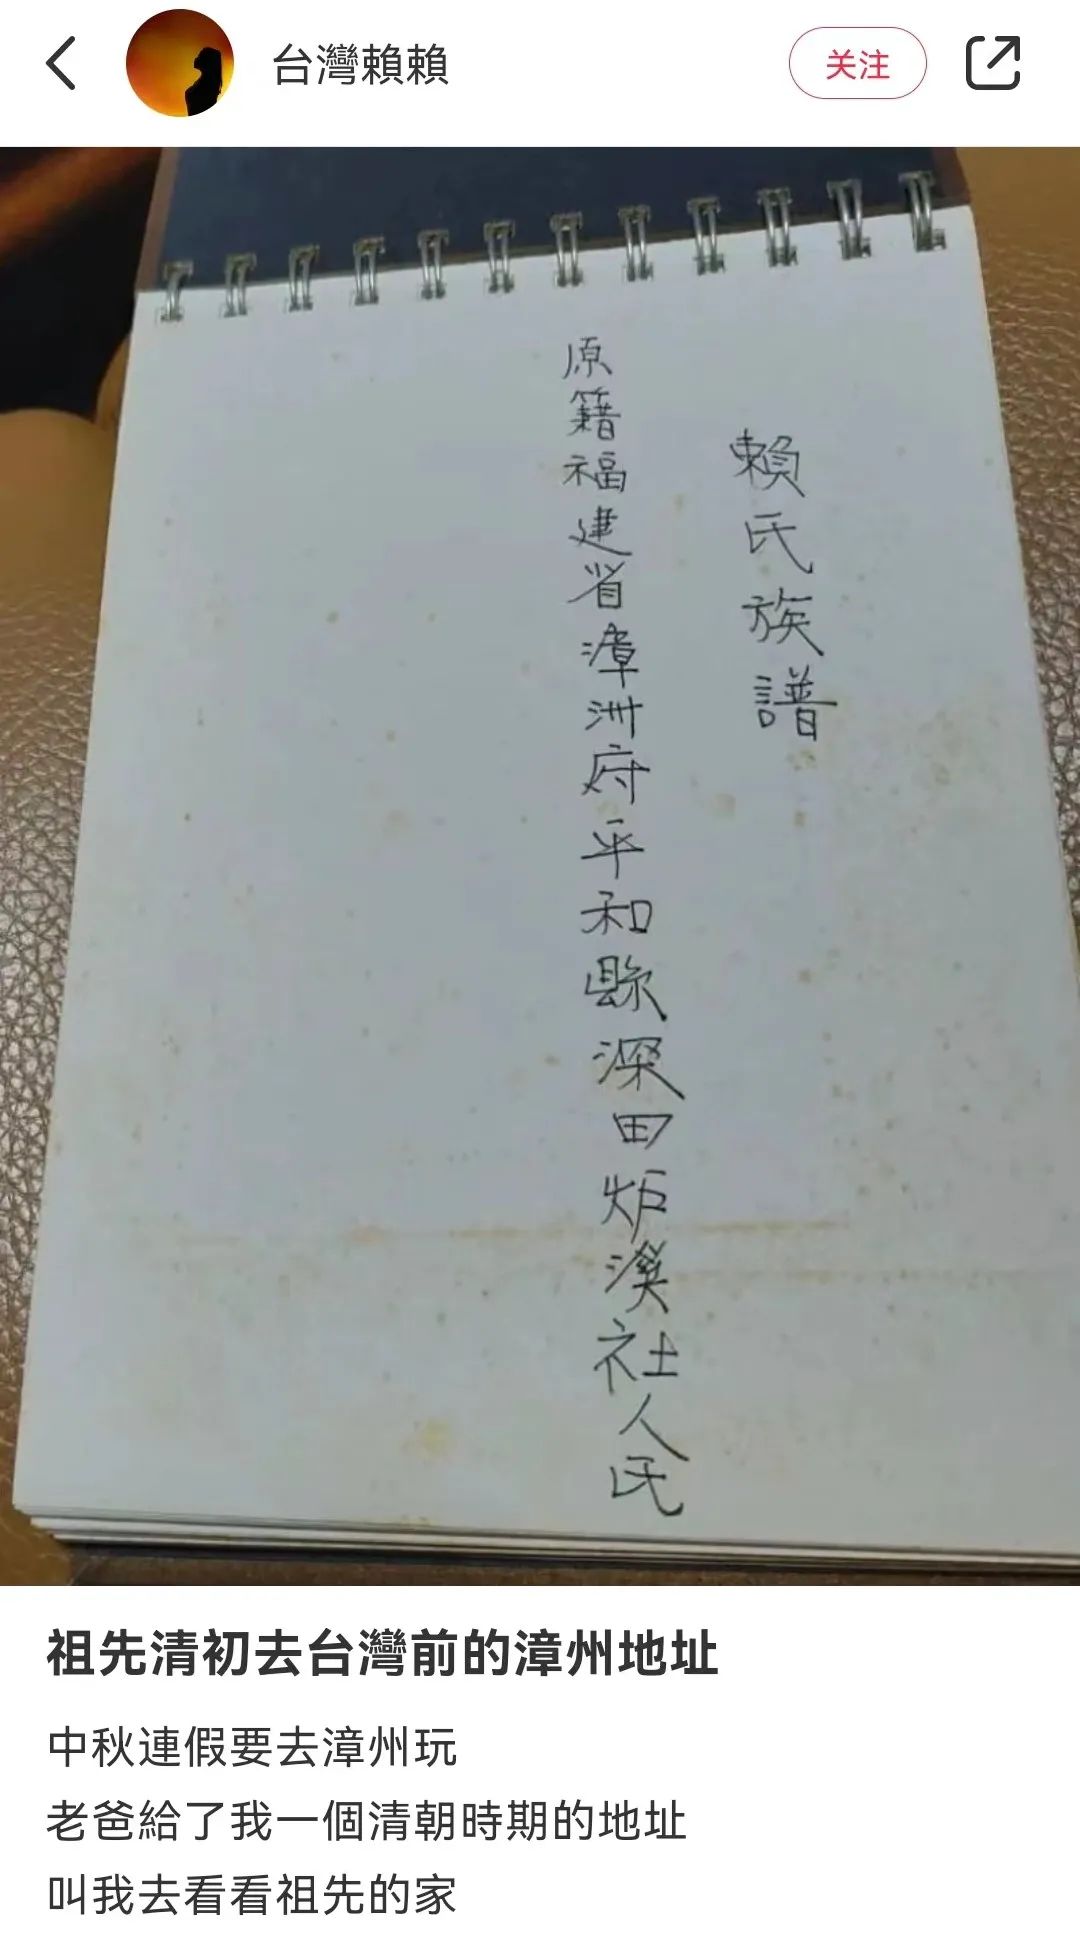 台灣賴賴
关注
賴氏族譜
原籍福建省漳洲府平和縣深田炉溪社人民
祖先清初去台灣前的漳州地址
中秋連假要去漳州玩
老爸給了我一個清朝時期的地址
叫我去看看祖先的家